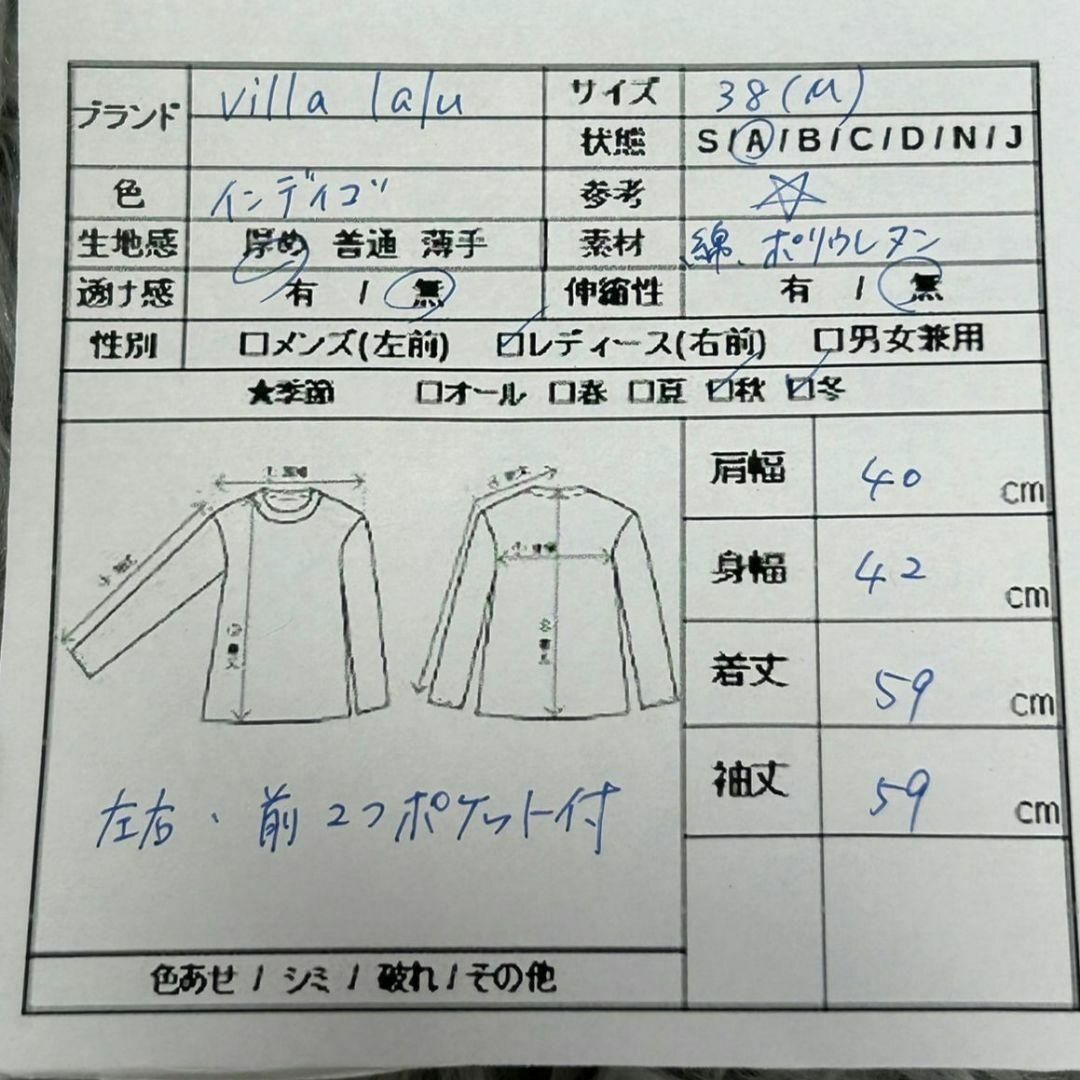 ブランド villa lalu サイズ 38(M)
状態 S/A/B/C/D/N/J
色 インディゴ 参考 ☆
生地感 厚め 普通 薄手 素材 綿、ポリウレタン
透け感 有 / 無 伸縮性 有 / 無
性別 □メンズ(左前) ☑レディース(右前) □男女兼用
★季節 □オール □春 □夏 ☑秋 ☑冬
肩幅 40 cm
身幅 42 cm
着丈 59 cm
袖丈 59 cm
左右、前2つポケット付
色あせ / シミ / 破れ / その他